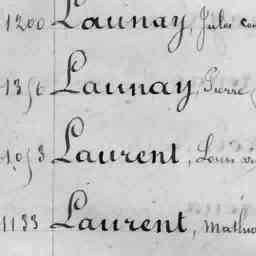 1200 Launay, Jules
1356 Launay, Pierre
1053 Laurent, Louis
1133 Laurent, Mathu